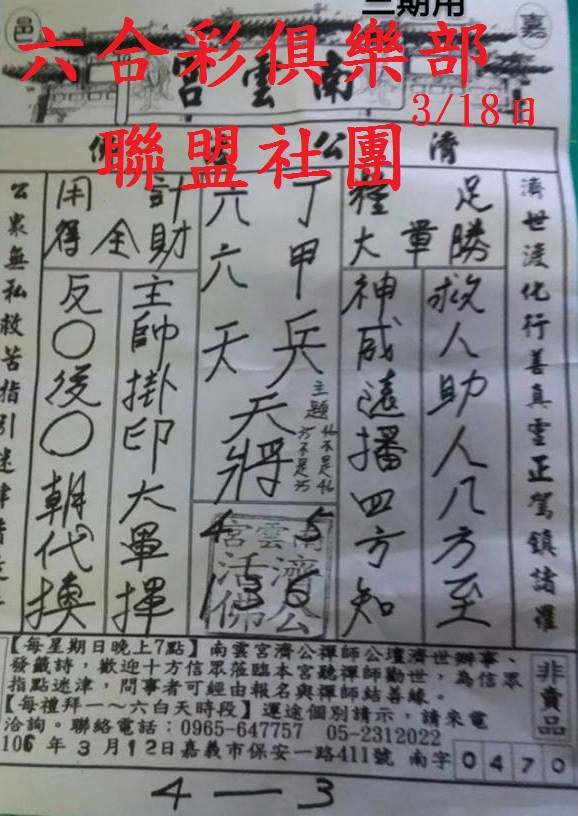 三期用
嘉
邑
南雲宮
六合彩俱樂部
3/18日
聯盟社團
濟公
濟世渡化行善真靈正駕鎮諸羅
足勝
種大單
救人助人八方至
神威遠播四方知
丁甲兵將
六六天天
主題
46不是46
35不是35
4 5
1 3 6
南雲宮
濟公
活佛
計財
用得全
主帥掛印大軍揮
反○後○朝代換
公眾無私救苦指引迷津
【每星期日晚上7點】南雲宮濟公禪師公壇濟世辦事、
發籤詩,歡迎十方信眾蒞臨本宮聽禪師勸世,為信眾
指點迷津,問事者可經由報名與禪師結善緣。
【每禮拜一～六白天時段】運途個別請示,請來電
洽詢。聯絡電話:0965-647757 05-2312022
106年3月12日嘉義市保安一路411號 南字0470
非賣品
4—3